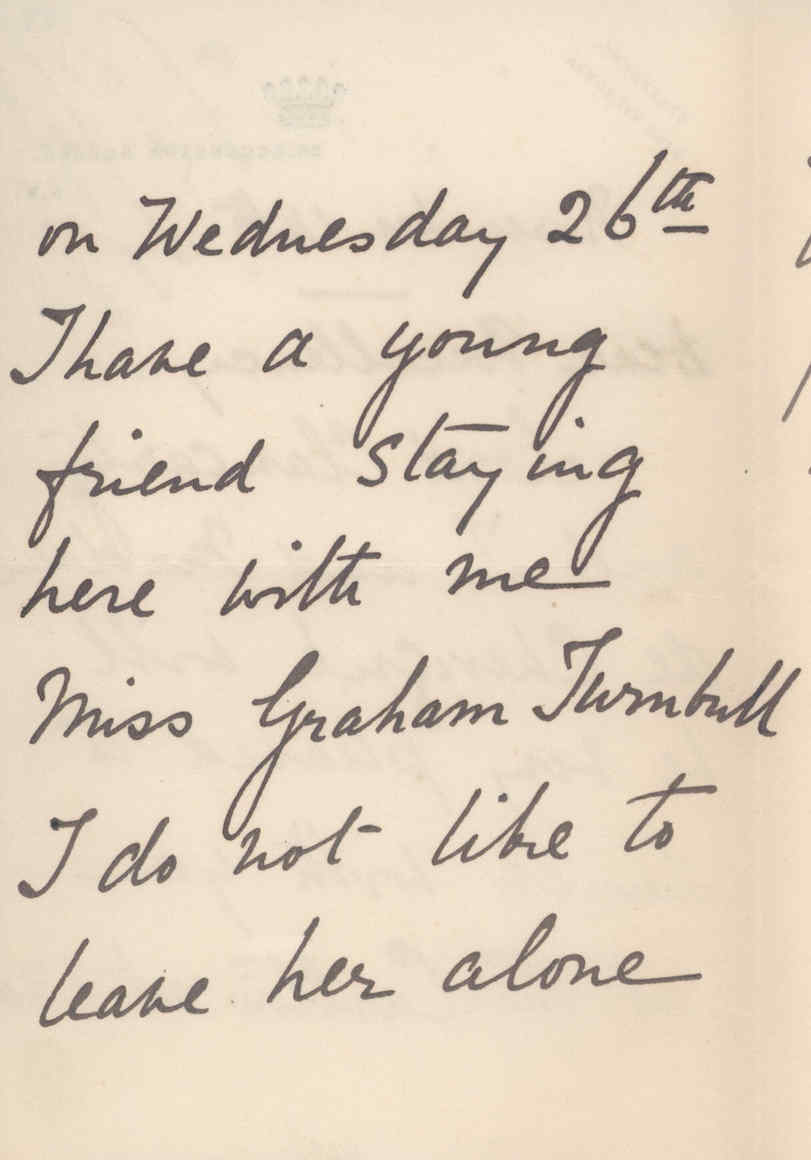 on Wednesday 26th
I have a young
friend staying
here with me
Miss Graham Turnbull
I do not like to
leave her alone